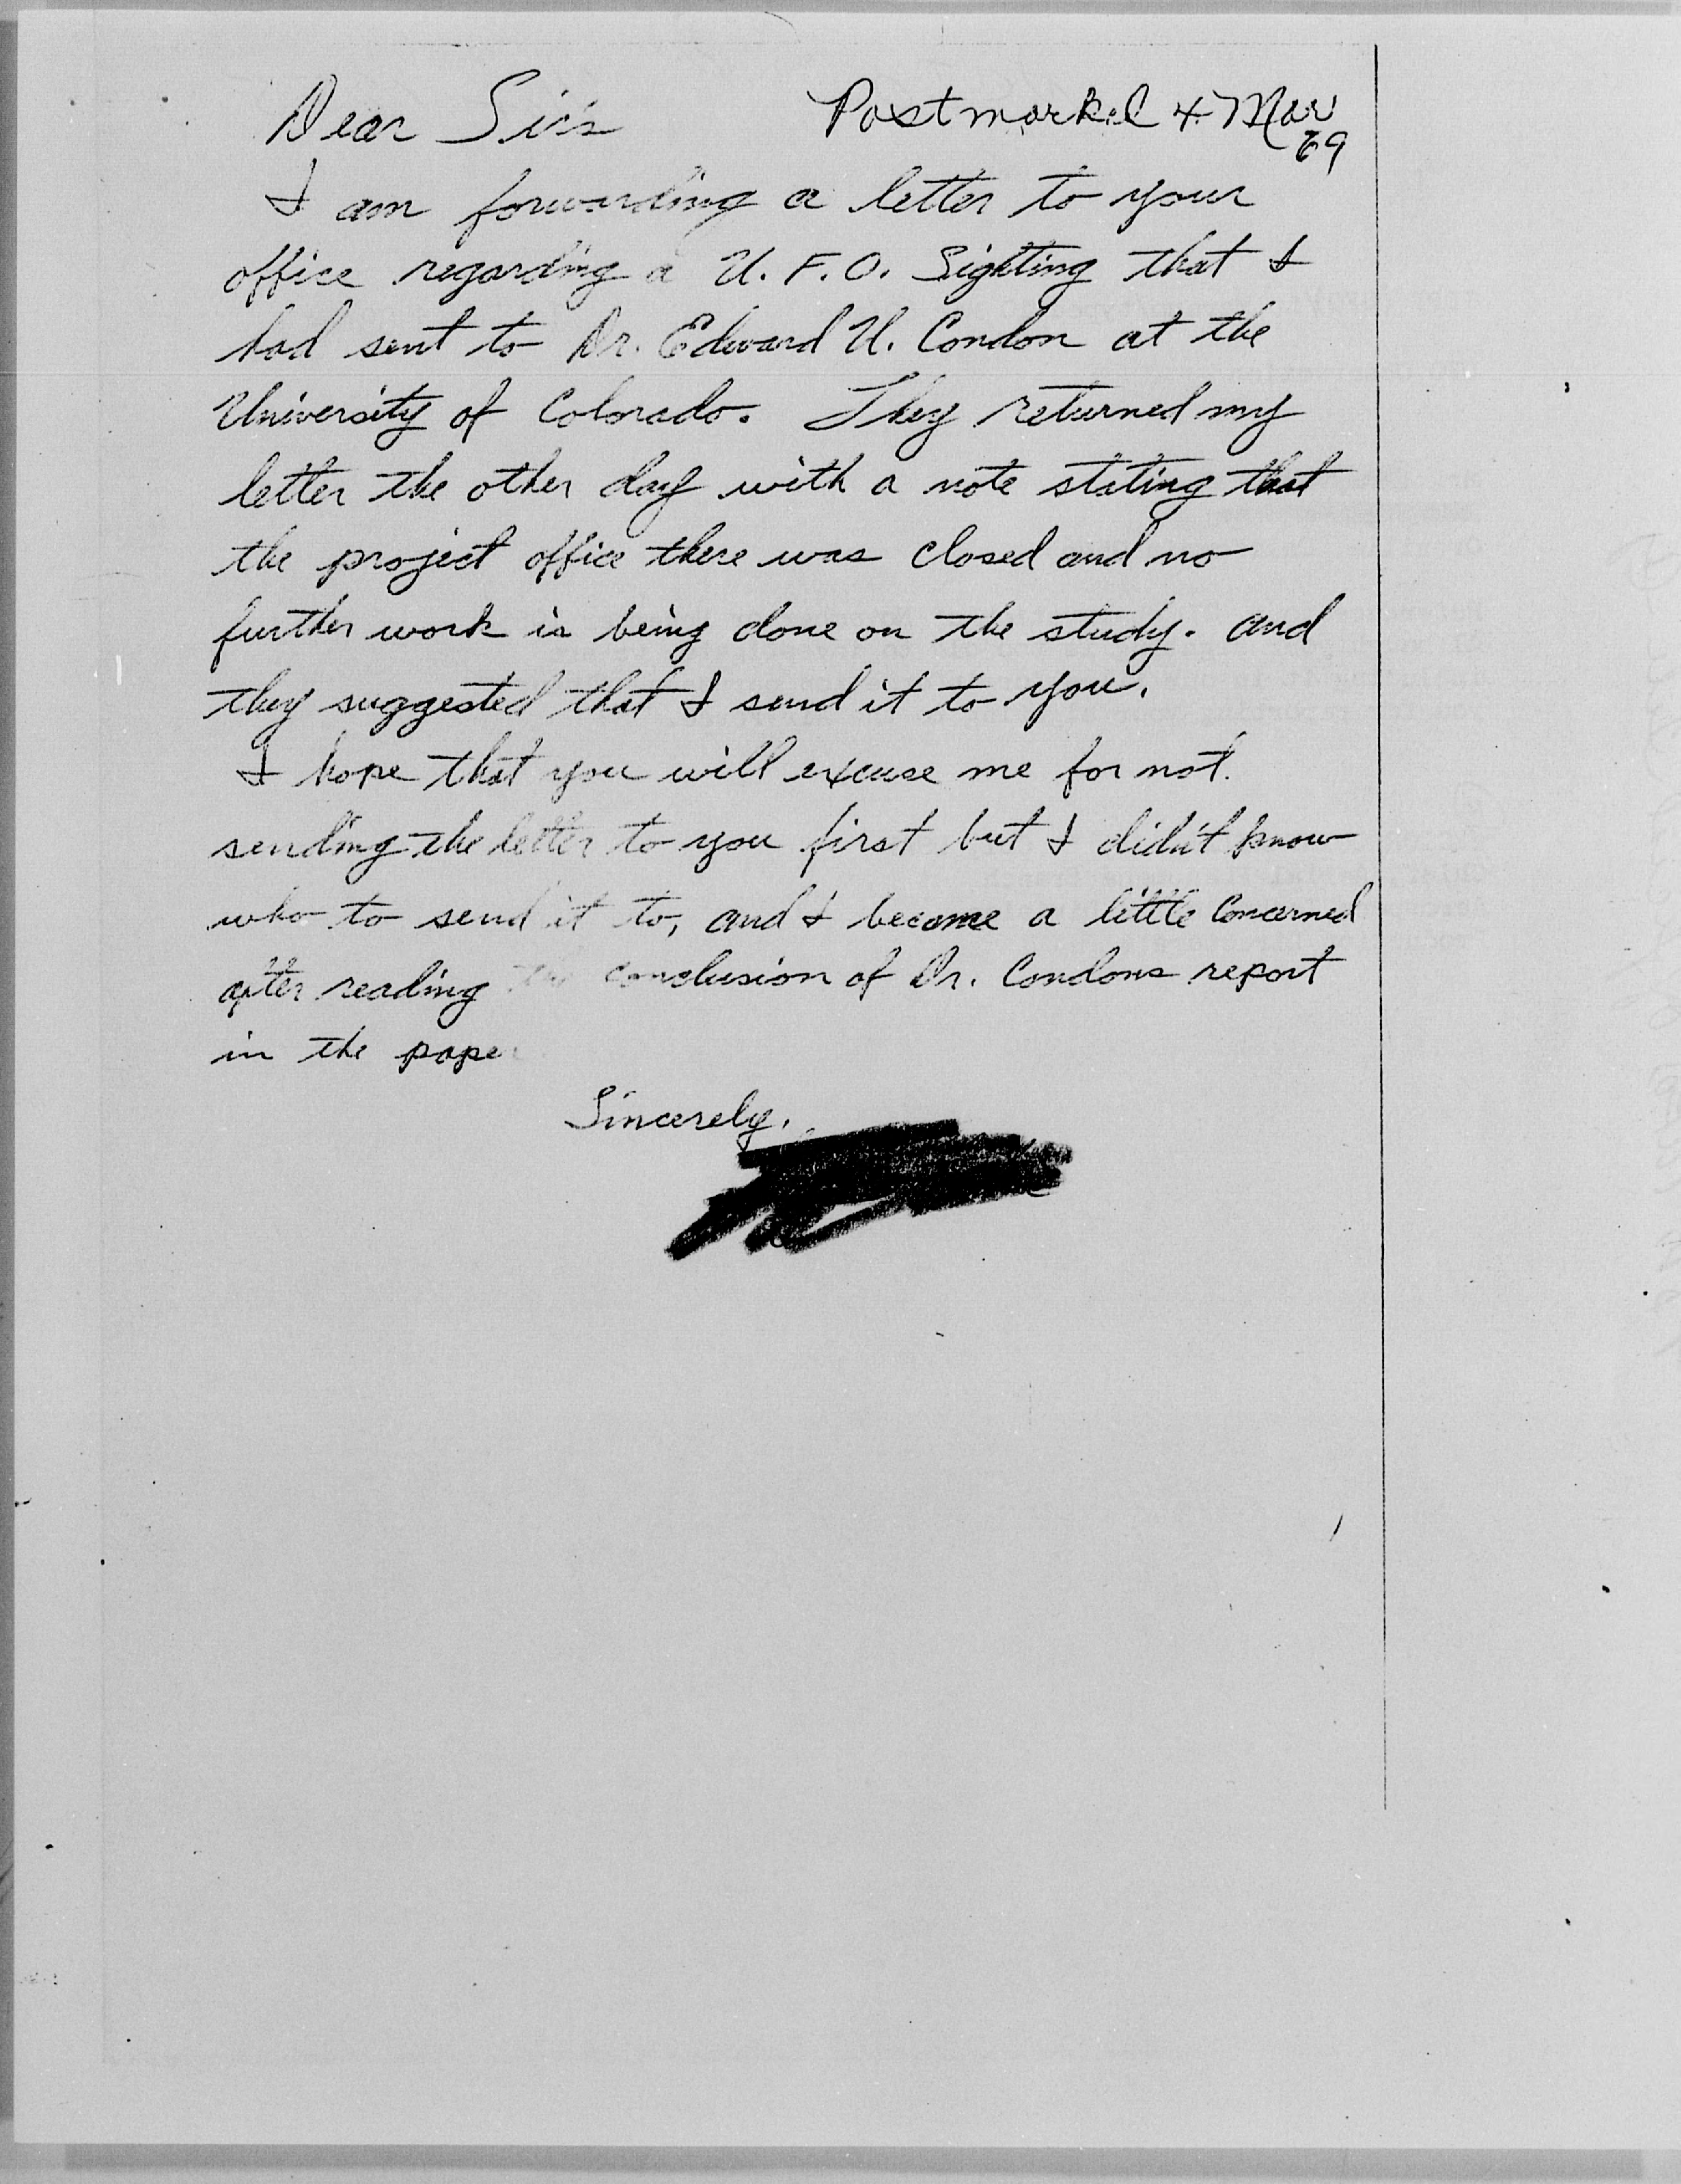 Dear Sir's
Postmarked 4 Mar
69
I am forwarding a letter to your
office regarding a U.F.O. Sighting that I
had sent to Dr. Edward U. Condon at the
University of Colorado. They returned my
letter the other day with a note stating that
the project office there was closed and no
further work is being done on the study. and
they suggested that I send it to you.
I hope that you will excuse me for not
sending the letter to you first but I didn't know
who to send it to, and I became a little concerned
after reading the conclusion of Dr. Condons report
in the paper
Sincerely,